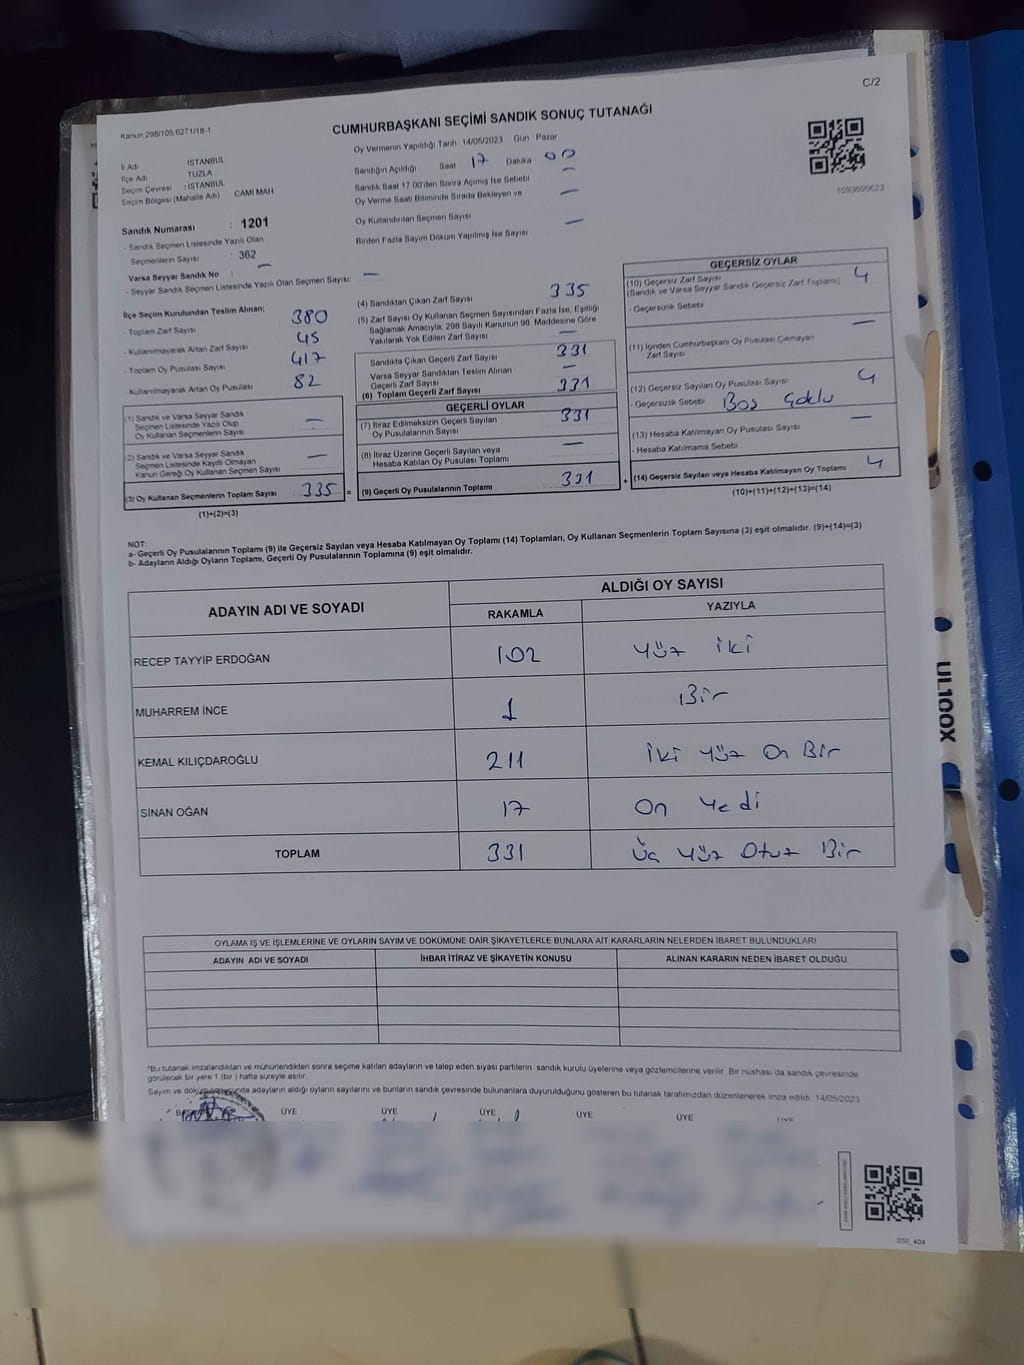 C/2
Kanun.298/105.6271/18-1
CUMHURBAŞKANI SEÇİMİ SANDIK SONUÇ TUTANAĞI
İl Adı İSTANBUL
İlçe Adı TUZLA
Seçim Çevresi : İSTANBUL
Seçim Bölgesi (Mahalle Adı) CAMİ MAH
Oy Vermenin Yapıldığı Tarih :14/05/2023 Gün : Pazar
Sandığın Açıldığı Saat 17 Dakika 00
Sandık Saat 17.00'den Sonra Açılmış İse Sebebi —
Oy Verme Saati Bitiminde Sırada Bekleyen ve —
Oy Kullandırılan Seçmen Sayısı
Birden Fazla Sayım Döküm Yapılmış İse Sayısı —
1093690623
Sandık Numarası : 1201
- Sandık Seçmen Listesinde Yazılı Olan
Seçmenlerin Sayısı : 362
Varsa Seyyar Sandık No : —
- Seyyar Sandık Seçmen Listesinde Yazılı Olan Seçmen Sayısı : —
İlçe Seçim Kurulundan Teslim Alınan:
- Toplam Zarf Sayısı 380
- Kullanılmayarak Artan Zarf Sayısı 45
- Toplam Oy Pusulası Sayısı 417
- Kullanılmayarak Artan Oy Pusulası 82
(1) Sandık ve Varsa Seyyar Sandık
Seçmen Listesinde Yazılı Olup
Oy Kullanan Seçmenlerin Sayısı —
(2) Sandık ve Varsa Seyyar Sandık
Seçmen Listesinde Kayıtlı Olmayan
Kanun Gereği Oy Kullanan Seçmen Sayısı —
(3) Oy Kullanan Seçmenlerin Toplam Sayısı 335 =
(1)+(2)=(3)
(4) Sandıktan Çıkan Zarf Sayısı 335
(5) Zarf Sayısı Oy Kullanan Seçmen Sayısından Fazla İse, Eşitliği
Sağlamak Amacıyla, 298 Sayılı Kanunun 98. Maddesine Göre
Yakılarak Yok Edilen Zarf Sayısı —
Sandıkta Çıkan Geçerli Zarf Sayısı 331
Varsa Seyyar Sandıktan Teslim Alınan
Geçerli Zarf Sayısı —
(6) Toplam Geçerli Zarf Sayısı 331
GEÇERLİ OYLAR
(7) İtiraz Edilmeksizin Geçerli Sayılan
Oy Pusulalarının Sayısı 331
(8) İtiraz Üzerine Geçerli Sayılan veya
Hesaba Katılan Oy Pusulası Toplamı —
(9) Geçerli Oy Pusulalarının Toplamı 331 +
GEÇERSİZ OYLAR
(10) Geçersiz Zarf Sayısı 4
(Sandık ve Varsa Seyyar Sandık Geçersiz Zarf Toplamı)
- Geçersizlik Sebebi
(11) İçinden Cumhurbaşkanı Oy Pusulası Çıkmayan —
Zarf Sayısı
(12) Geçersiz Sayılan Oy Pusulası Sayısı 4
- Geçersizlik Sebebi Boş
(13) Hesaba Katılmayan Oy Pusulası Sayısı —
- Hesaba Katılmama Sebebi
(14) Geçersiz Sayılan veya Hesaba Katılmayan Oy Toplamı 4
(10)+(11)+(12)+(13)=(14)
NOT:
a- Geçerli Oy Pusulalarının Toplamı (9) ile Geçersiz Sayılan veya Hesaba Katılmayan Oy Toplamı (14) Toplamları, Oy Kullanan Seçmenlerin Toplam Sayısına (3) eşit olmalıdır. (9)+(14)=(3)
b- Adayların Aldığı Oyların Toplamı, Geçerli Oy Pusulalarının Toplamına (9) eşit olmalıdır.
ADAYIN ADI VE SOYADI ALDIĞI OY SAYISI
RAKAMLA YAZIYLA
RECEP TAYYİP ERDOĞAN 102 Yüz iki
MUHARREM İNCE 1 Bir
KEMAL KILIÇDAROĞLU 211 iki Yüz On Bir
SİNAN OĞAN 17 On Yedi
TOPLAM 331 Üç Yüz Otuz Bir
OYLAMA İŞ VE İŞLEMLERİNE VE OYLARIN SAYIM VE DÖKÜMÜNE DAİR ŞİKAYETLERLE BUNLARA AİT KARARLARIN NELERDEN İBARET BULUNDUKLARI
ADAYIN ADI VE SOYADI İHBAR İTİRAZ VE ŞİKAYETİN KONUSU ALINAN KARARIN NEDEN İBARET OLDUĞU
*Bu tutanak imzalandıktan ve mühürlendikten sonra seçime katılan adayların ve talep eden siyasi partilerin sandık kurulu üyelerine veya gözlemcilerine verilir. Bir nüshası da sandık çevresinde
görülecek bir yere 1 (bir) hafta süreyle asılır.
Sayım ve döküm sonucunda adayların aldığı oyların sayılarını ve bunların sandık çevresinde bulunanlara duyurulduğunu gösteren bu tutanak tarafımızdan düzenlenerek imza edildi. 14/05/2023
ÜYE ÜYE ÜYE ÜYE ÜYE ÜYE
UL100X
SSI_404